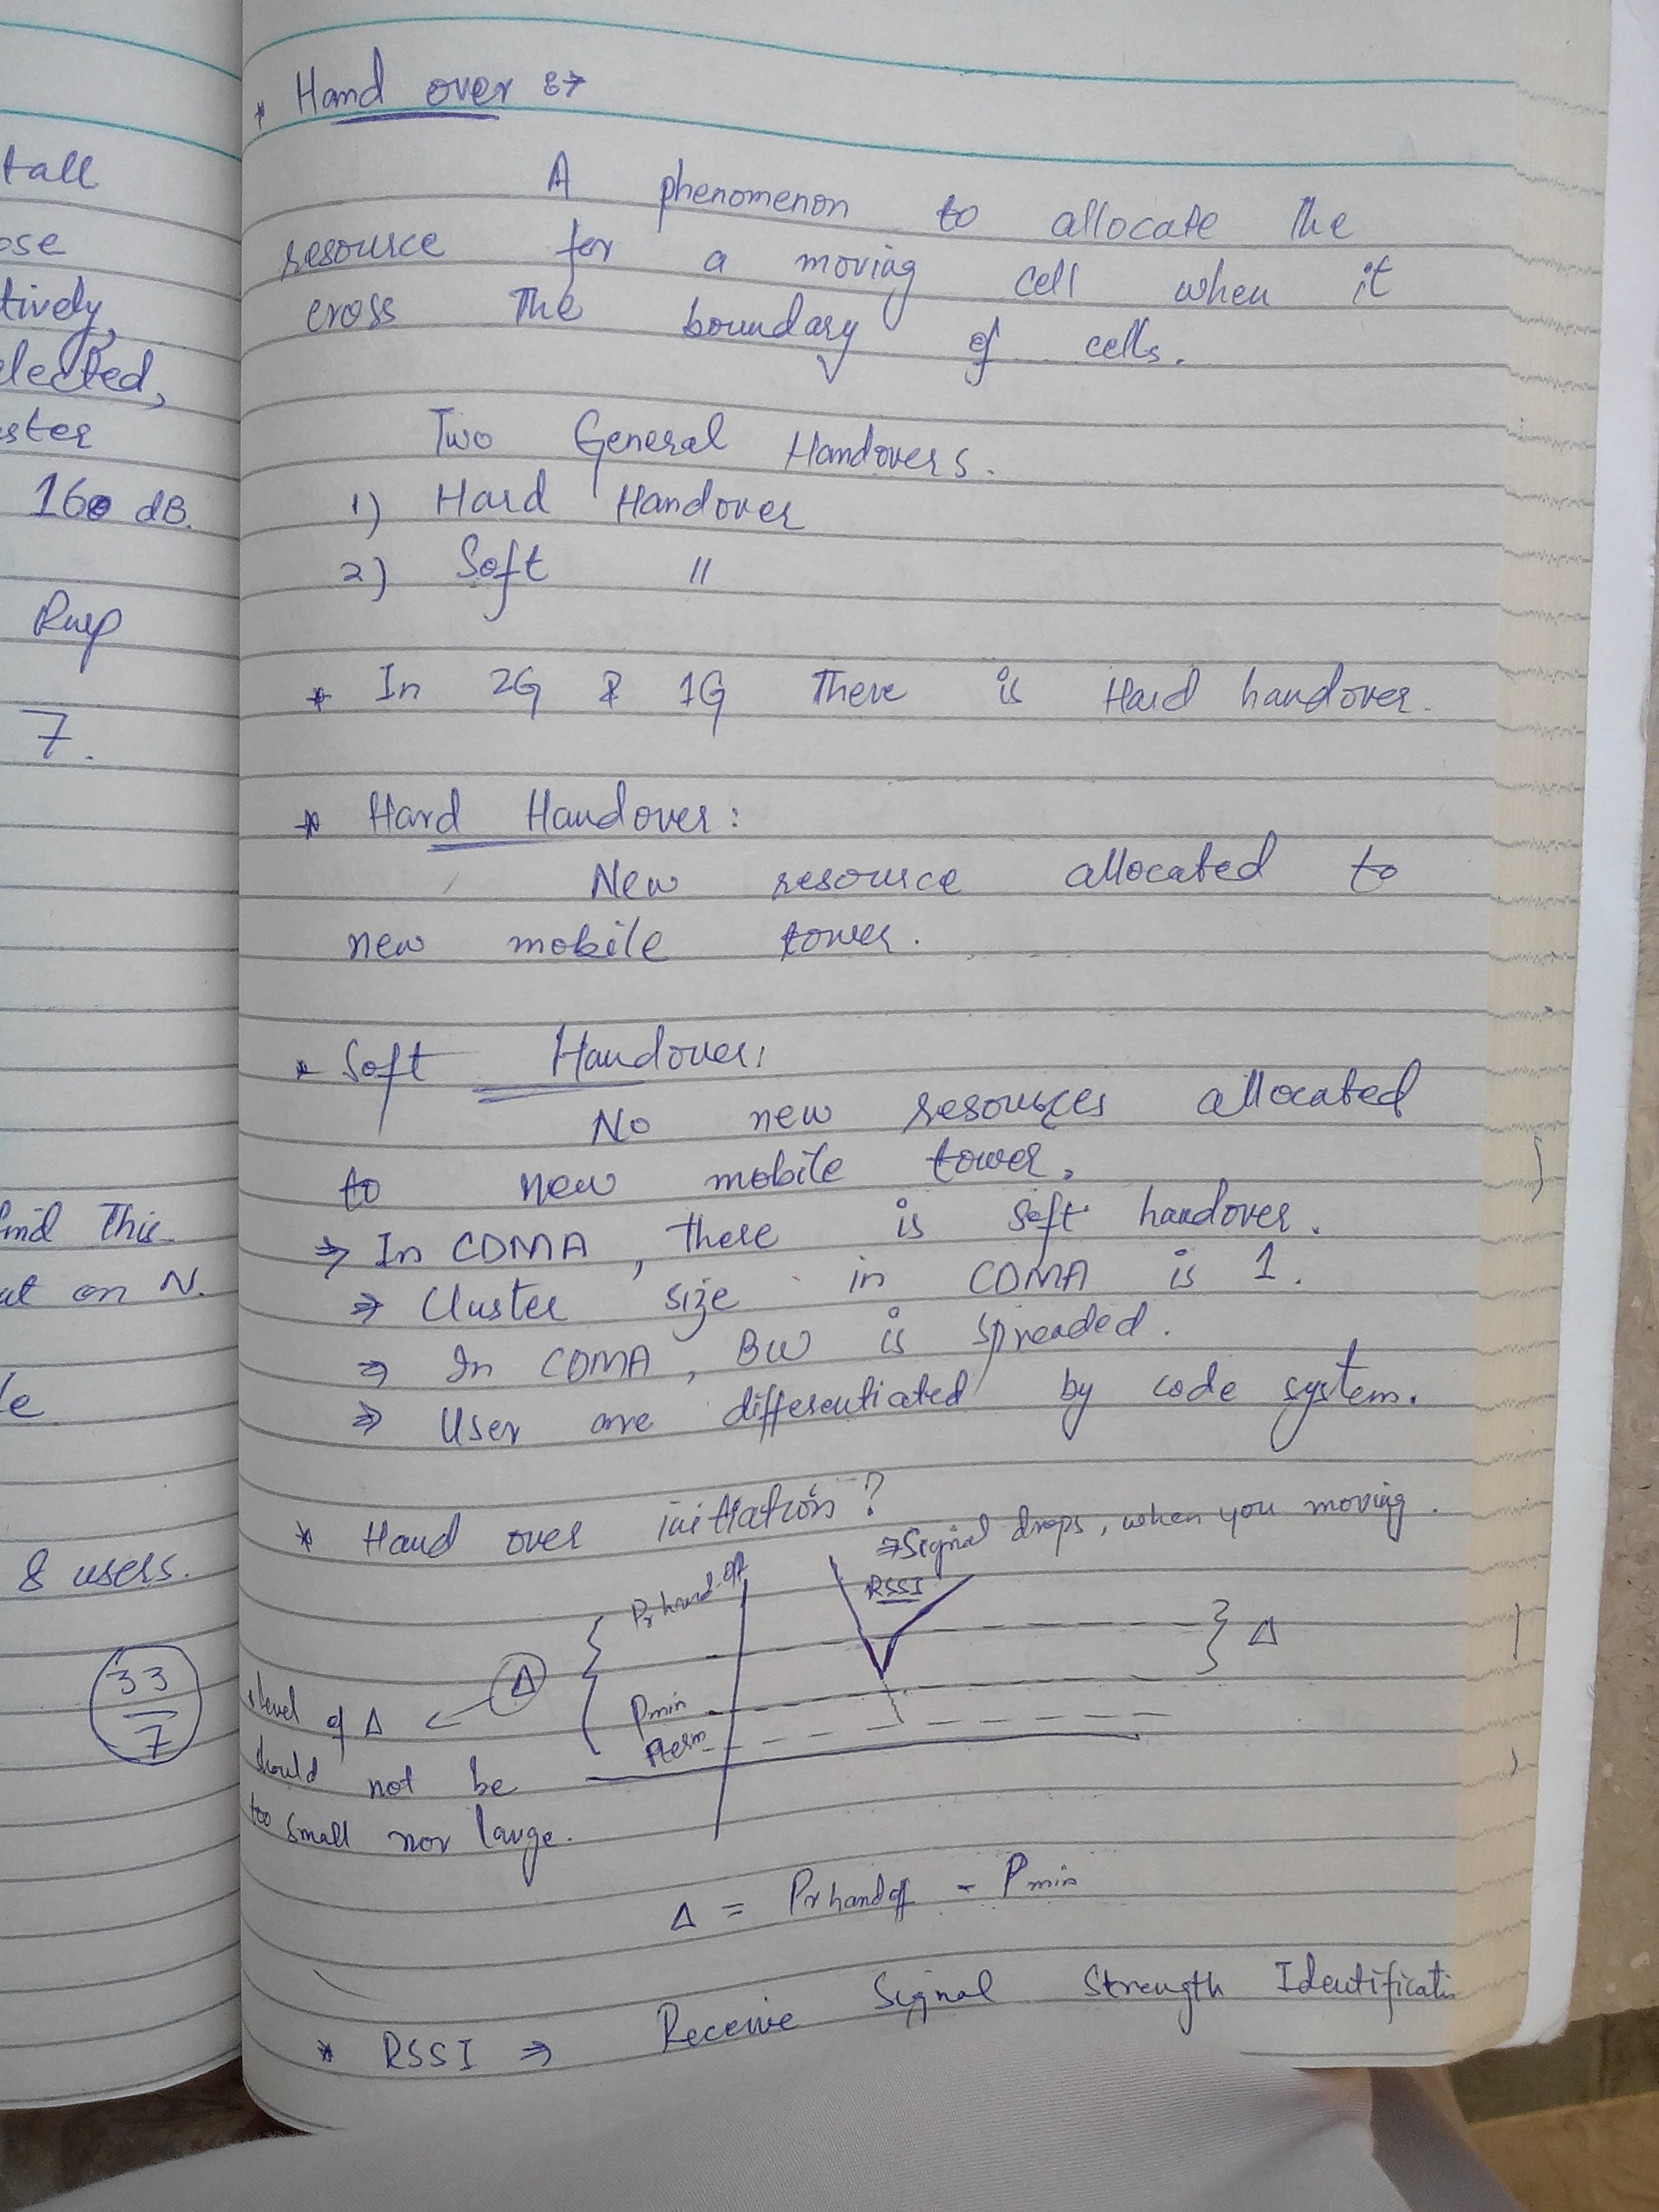 tall
ose
tively,
elected,
ster
160 dB.
Rup
7.
find This
at on N.
le
8 users.
33
7
* Hand over :→
A phenomenon to allocate the
resource for a moving cell when it
cross the boundary of cells.
Two General Handovers.
1) Hard Handover
2) Soft "
* In 2G & 1G There is Hard handover.
* Hard Handover:
New resource allocated to
new mobile tower.
* Soft Handover:
No new resources allocated
to new mobile tower.
⇒ In CDMA, there is soft handover.
⇒ Cluster size in CDMA is 1.
⇒ In CDMA, BW is spreaded.
⇒ User are differentiated by code system.
* Hand over initiation?
⇒ Signal drops, when you moving.
RSSI
Pr hand-off
Δ
Δ
Pmin
Pterm
level of Δ
should not be
too small nor large.
Δ = Pr handoff - Pmin
* RSSI ⇒ Receive Signal Strength Identificati